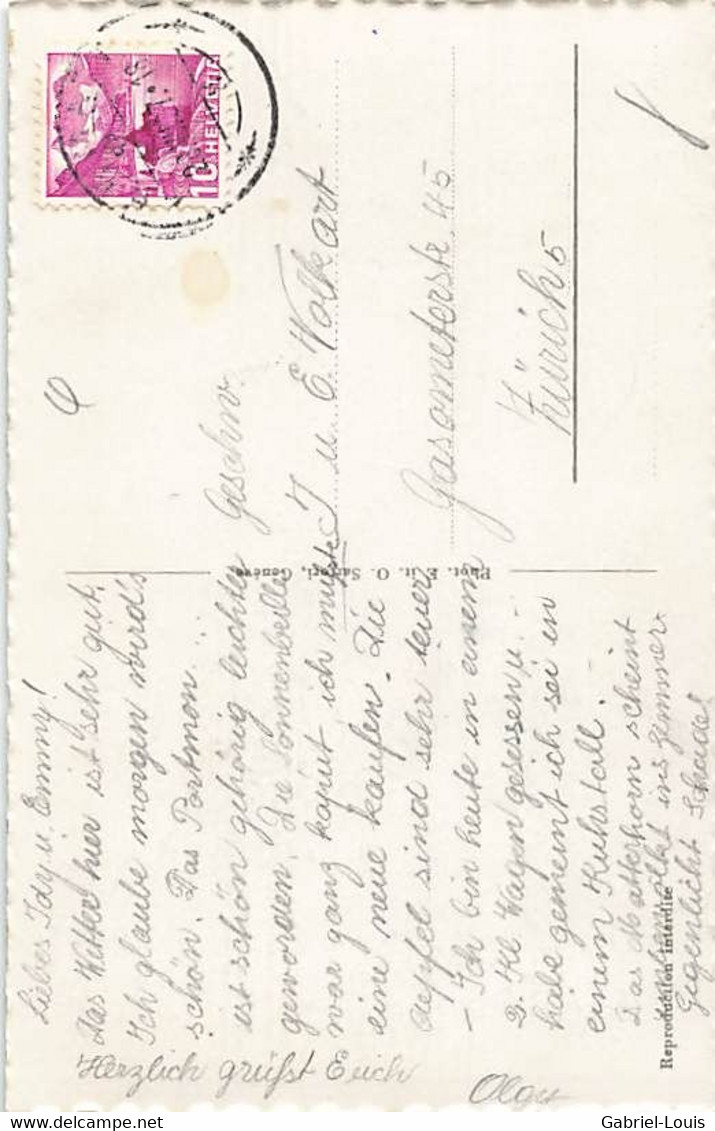 Liebes Idy u. Emmy!
Das Wetter hier ist sehr gut,
Ich glaube morgen wird's
schön. Das Portmon...
ist schön gehörig leichter
geworden. Die Sonnenbrille
war ganz kaput ich musste
eine neue kaufen. Die
Aepfel sind sehr teuer
- Ich bin heute in einem
Wagen gesessen u.
habe gemeint ich sei in
einem Kuhstall.
Das Matterhorn scheint
ins Zimmer.
Gegenlicht Schadel
Herzlich grüsst Euch
Olgy
Geschw.
I u. E. Volkart
Gasometerstr. 45
Zürich 5
HELVETIA
10
Phot. Edit. O. Sartori, Genève
Reproduction interdite
Gabriel-Louis